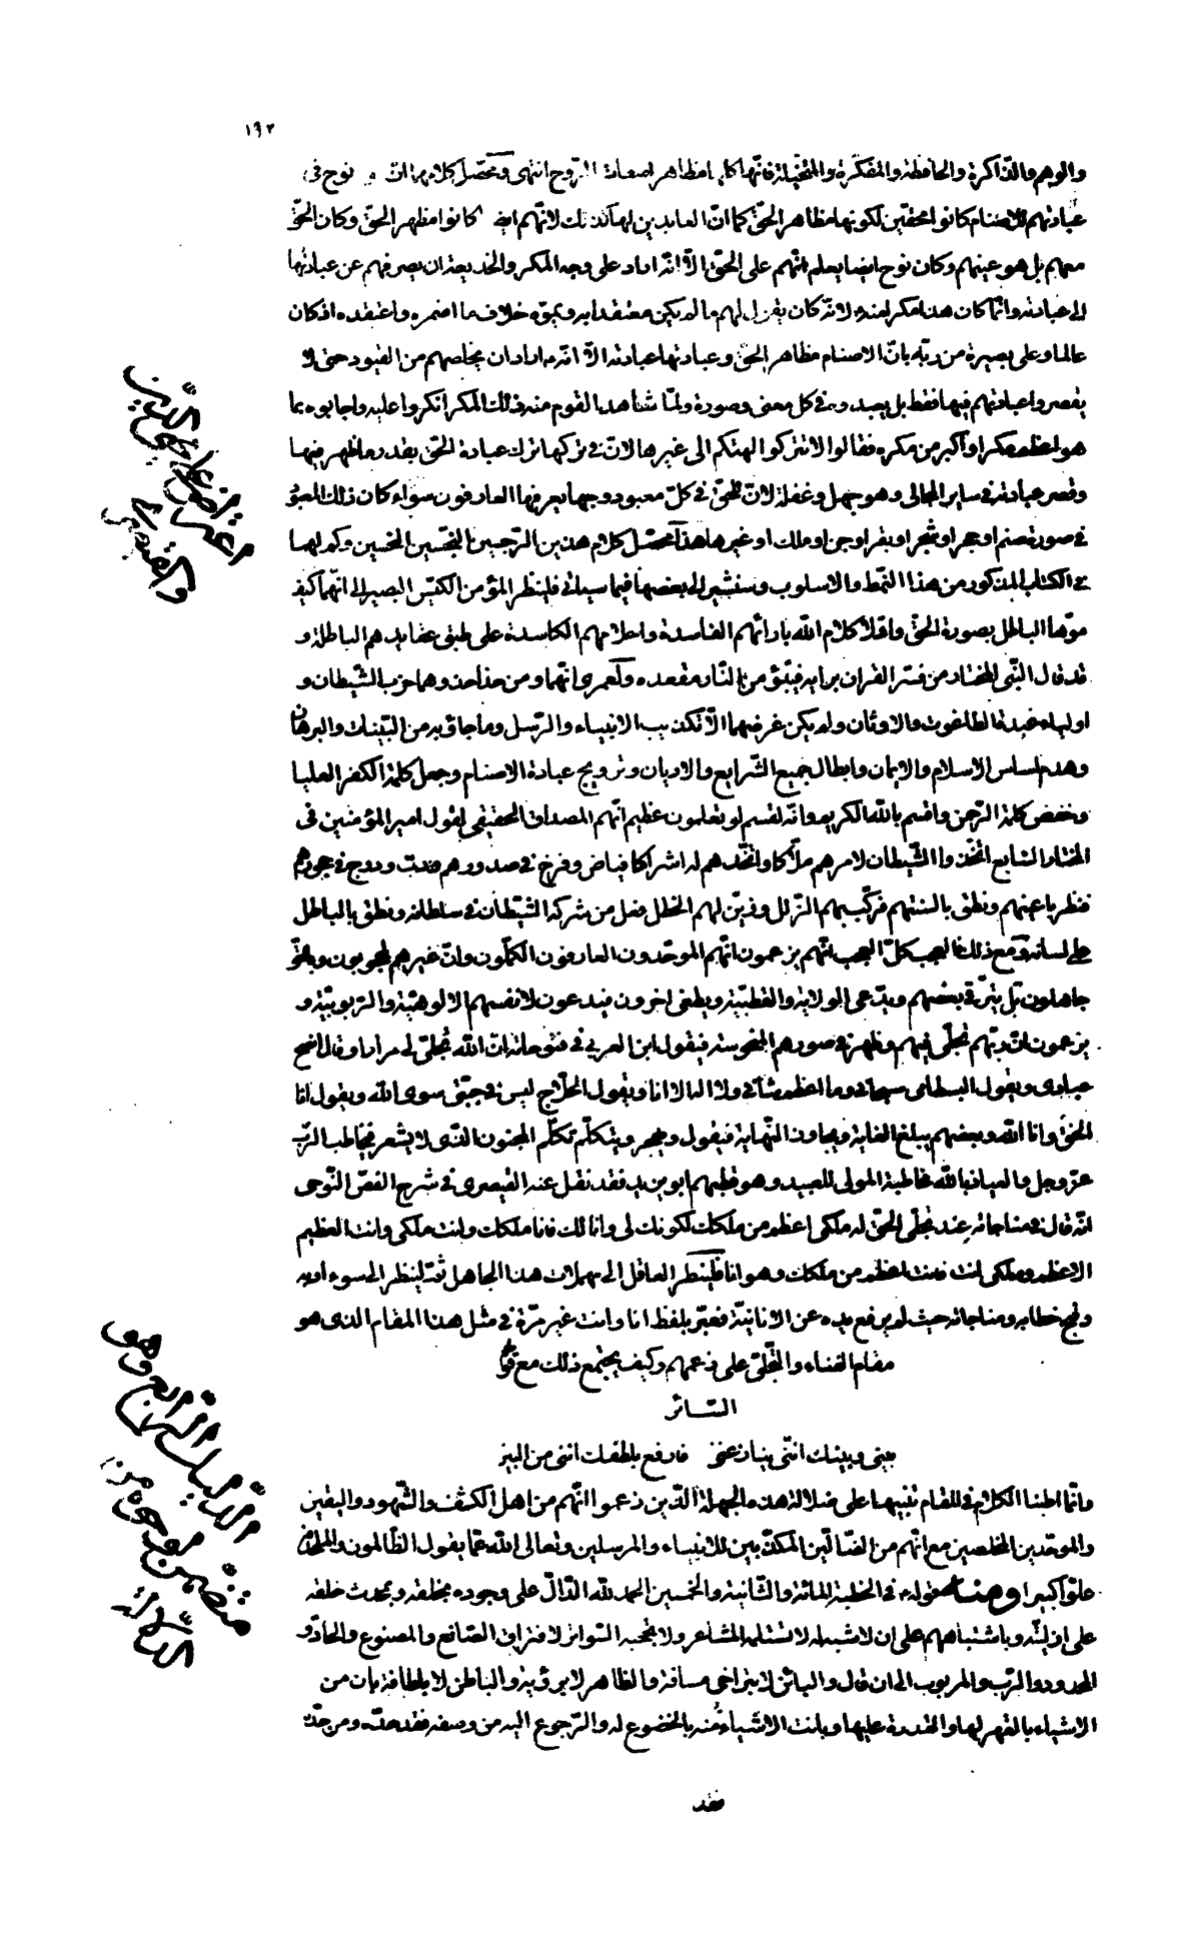 ١٩٢
والوهم والذّاكرة والحافظة والمفكّرة والمتخيّلة فانّها كلها مظاهر لصفات الرّوح انتهى ومحصّل كلامهما انّ قوم نوح فى
عبادتهم للاصنام كانوا محقّين لكونها مظاهر الحقّ كما انّ العابدين لها كذلك لانّهم ايضا كانوا مظهر الحقّ وكان الحقّ
معهم بل هو عينهم وكان نوح ايضا يعلم انّهم على الحقّ الّا انّه اراد على وجه المكر والخديعة ان يصرفهم عن عبادتها
الى عبادته وانّما كان هذا مكرا منه لانّه كان يقول لهم ما لم يكن معتقدا به ويموّه خلاف ما اضمره واعتقده اذ كان
عالما وعلى بصيرة من ربّه بانّ الاصنام مظاهر الحقّ وعبادتها عبادته الّا انّه اراد ان يخلصهم من القيود حتى لا
يقصروا عبادتهم فيها فقط بل يعبدوه فى كل معنى وصورة ولمّا شاهد القوم منه ذلك المكر انكروا عليه واجابوه بما
هو اعظم مكرا واكبر من مكره فقالوا لا تتركوا الهتكم الى غيرها لانّ فى تركها ترك عبادة الحقّ بقدر ما ظهر فيها
وقصر عبادته فى ساير المجالى وهو جهل وغفلة لانّ للحقّ فى كلّ معبود وجها يعرفها العارفون سواء كان ذلك المعبود
فى صورة صنم او حجر او شجر او بقر او جن او ملك او غيرها هذا محصّل كلام هذين الرّجسين النّجسين النحسين وكم لهما
فى الكتاب المذكور من هذا النّمط والاسلوب وسنشير الى بعضها فيما سيأتى فلينظر المؤمن الكيّس البصير الى انّهما كيف
موّها الباطل بصورة الحقّ واوّلا كلام الله بارائهم الفاسدة واحلامهم الكاسدة على طبق عقايدهم الباطلة و
قد قال النّبى المختار من فسّر القران برايه فليتبوّء من النّار مقعده ولعمرى انّهما ومن حذا حذوهما حزب الشّيطان و
اولياء عبدة الطاغوت والاوثان ولم يكن غرضهما الّا تكذيب الانبياء والرّسل وما جاؤا به من البيّنات والبرهان
وهدم اساس الاسلام والايمان وابطال جميع الشّرايع والاديان وترويج عبادة الاصنام وجعل كلمة الكفر العليا
وخفض كلمة الرّحمن واقسم بالله الكريم وانّه لقسم لو تعلمون عظيم انّهم المصداق الحقيقى لقول امير المؤمنين فى
المختار السّابع اتّخذوا الشّيطان لامرهم ملاكا واتّخذهم له اشراكا فباض وفرخ فى صدورهم ودبّ ودرج فى حجورهم
فنظر باعينهم ونطق بالسنتهم فركب بهم الزّلل وزيّن لهم الخطل فعل من شركه الشّيطان فى سلطانه ونطق بالباطل
على لسانه ومع ذلك فالعجب كلّ العجب انّهم يزعمون انّهم الموحّدون العارفون الكمّلون وانّ غيرهم لمحجوبون وبالحقّ
جاهلون بل يترقّى بعضهم ويدّعى الولاية والقطبيّة ويطغى اخرون فيدعون لانفسهم الالوهيّة والرّبوبيّة و
يزعمون انّ ربّهم تجلّى فيهم وظهر فى صورهم المنحوسة فيقول ابن العربى فى فتوحاته انّ الله تجلّى لى مرارا وقال انصح
عبادى ويقول البسطامى سبحانى وما اعظم شأنى ولا اله الا انا ويقول الحلّاج ليس فى جبّتى سوى الله ويقول انا
الحقّ وانا الله وبعضهم يبلغ الغاية ويجاوز النّهاية فيقول ويهجر ويتكلّم تكلّم المجنون الّذى لا يشعر فيخاطب الرّب
عزّ وجل والعياذ بالله مخاطبة المولى للعبيد وهو قطبهم ابو يزيد فقد نقل عنه القيصرى فى شرح الفصّ النّوحى
انّه قال فى مناجاته عند تجلّى الحقّ له ملكى اعظم من ملكك لكونك لى وانا لك فانا ملكك وانت ملكى وانت العظيم
الاعظم وملكى انت فانت اعظم من ملكك وهو انا فلينظر العاقل الى مهملات هذا الجاهل ثمّ لينظر الى سوء ادبه
وقبح خطابه ومناجاته حيث لم يرفع يده عن الانانيّة فعبّر بلفظ انا وانت غير مرّة فى مثل هذا المقام الذى هو
مقام الفناء والتّجلّى على زعمهم وكيف يجتمع ذلك مع قول
السّائر
بينى وبينك انّيى ينازعنى فارفع بلطفك انّيى من البين
وانّما اطلنا الكلام فى المقام تنبيها على ضلالة هذه الجهلة الّذين زعموا انّهم من اهل الكشف والشّهود واليقين
والموحّدين المخلصين مع انّهم من الضّالّين المكذّبين للانبياء والمرسلين وتعالى الله عمّا يقول الظّالمون والملحدون
علوّا كبيرا ومنها قوله فى الخطبة المائة والثّانية والخمسين الحمد لله الدّالّ على وجوده بخلقه وبمحدث خلقه
على ازليّته وباشتباههم على ان لا شبه له لا تستلمه المشاعر ولا تحجبه السّواتر لافتراق الصّانع والمصنوع والحادّ و
المحدود والرّب والمربوب الى ان قال والبائن لا بتراخى مسافة والظاهر لا برؤية والباطن لا بلطافة بان من
الاشياء بالقهر لها والقدرة عليها وبانت الاشياء منه بالخضوع له والرّجوع اليه من وصفه فقد حدّه ومن حدّه
فقد